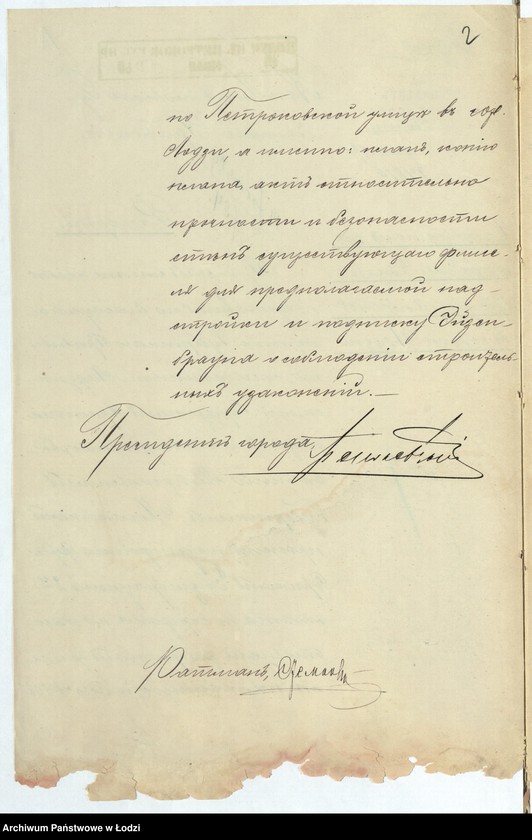 2
по Петроковской улицѣ въ гор.
Лодзи, а именно: планъ, копію
плана, актъ относительно
прочности и безопасности
стѣнъ существующаго флиге-
ля для предполагаемой над-
стройки и подписку Эйзен-
брауна о соблюденіи строитель-
ныхъ узаконеній.—
Президентъ города, Пеньковскій
Ратманъ,
Archiwum Państwowe w Łodzi